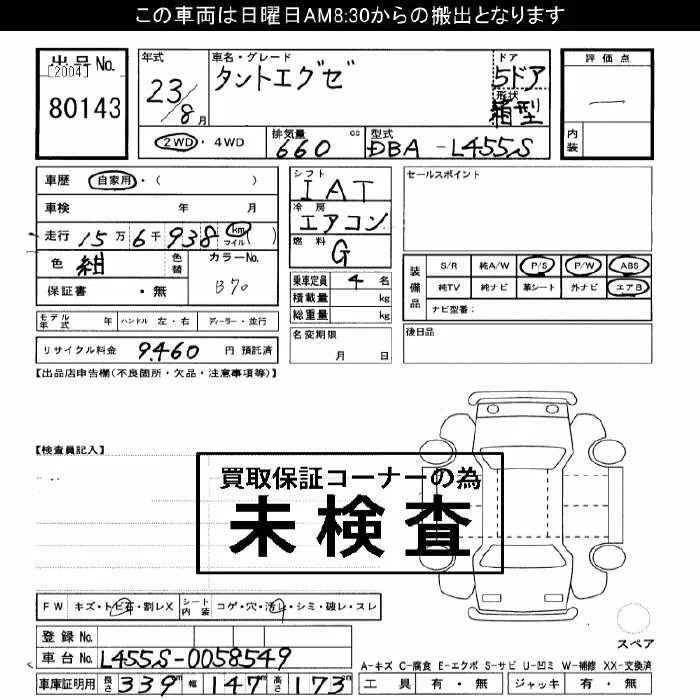 この車両は日曜日AM8:30からの搬出となります
出品No.
[2004]
80143
年式
23/8月
車名・グレード
タントエグゼ
ドア
5ドア
形状
箱型
評価点
—
内装
2WD・4WD
排気量 660 cc
型式 DBA-L455S
車歴 自家用・( )
車検 年 月
走行 15万6千938 km マイル ( )
色 紺 色替 カラーNo. B70
保証書 ・無
シフト
IAT
冷房
エアコン
燃料
G
乗車定員 4名
積載量 kg
総重量 kg
セールスポイント
装備品
S/R 純A/W P/S P/W ABS
純TV 純ナビ 革シート 外ナビ エアB
ナビ型番:
モデル年式 年 ハンドル 左・右 ディーラー・並行
名変期限
月 日
後日品
リサイクル料金 9,460 円 預託済
【出品店申告欄(不良箇所・欠品・注意事項等)】
【検査員記入】
買取保証コーナーの為
未検査
FW キズ・トビ石・割レX シート内装 コゲ・穴・汚レ・シミ・破レ・スレ
登録No.
車台No. L455S-0058549
スペア
A-キズ C-腐食 E-エクボ S-サビ U-凹ミ W-補修 XX-交換済
車庫証明用 長さ 339m 幅 147m 高さ 173cm
工具 有・無 ジャッキ 有・無